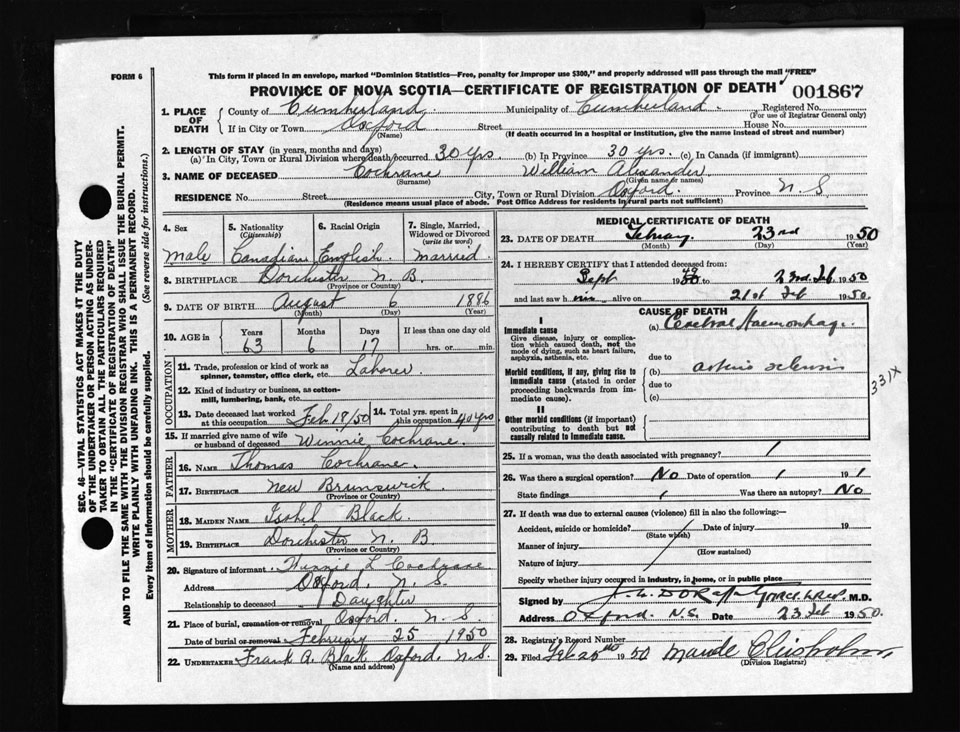 FORM 6
This form if placed in an envelope, marked "Dominion Statistics—Free, penalty for improper use $300," and properly addressed will pass through the mail "FREE"
PROVINCE OF NOVA SCOTIA—CERTIFICATE OF REGISTRATION OF DEATH 001867
1. PLACE OF DEATH
County of Cumberland. Municipality of Cumberland. Registered No.
(For use of Registrar General only)
If in City or Town Oxford Street House No.
(Name) (If death occurred in a hospital or institution, give the name instead of street and number)
2. LENGTH OF STAY (in years, months and days)
(a) In City, Town or Rural Division where death occurred 30 yrs. (b) In Province 30 yrs. (c) In Canada (if immigrant)
3. NAME OF DECEASED Cochrane William Alexander
(Surname) (Given name or names)
RESIDENCE No. Street City, Town or Rural Division Oxford. Province N.S
(Residence means usual place of abode. Post Office Address for residents in rural parts not sufficient)
4. Sex Male
5. Nationality (Citizenship) Canadian
6. Racial Origin English
7. Single, Married, Widowed or Divorced (write the word) Married
8. BIRTHPLACE Dorchester N. B.
(Province or Country)
9. DATE OF BIRTH August 6 1886
(Month) (Day) (Year)
10. AGE in Years Months Days If less than one day old
63 6 17 hrs. or min.
OCCUPATION
11. Trade, profession or kind of work as spinner, teamster, office clerk, etc. Laborer
12. Kind of industry or business, as cotton-mill, lumbering, bank, etc.
13. Date deceased last worked at this occupation Feb 18/50 14. Total yrs. spent in this occupation 40 yrs
15. If married give name of wife or husband of deceased Winnie Cochrane.
FATHER
16. NAME Thomas Cochrane.
17. BIRTHPLACE New Brunswick
(Province or Country)
MOTHER
18. MAIDEN NAME Isobil Black.
19. BIRTHPLACE Dorchester N. B
(Province or Country)
20. Signature of informant Winnie L Cochrane
Address Oxford, N. S.
Relationship to deceased Daughter
21. Place of burial, cremation or removal Oxford. N. S
Date of burial or removal February 25 1950
22. UNDERTAKER Frank A. Black Oxford, N.S.
(Name and address)
MEDICAL CERTIFICATE OF DEATH
23. DATE OF DEATH 23rd 1950
(Month) (Day) (Year)
24. I HEREBY CERTIFY that I attended deceased from:
Sept 49 to 23rd Feb 1950
and last saw him alive on 21st Feb 1950.
CAUSE OF DEATH
I
Immediate cause
Give disease, injury or complication which caused death, not the mode of dying, such as heart failure, asphyxia, asthenia, etc.
(a) Cerebral Haemorrhage.
due to
Morbid conditions, if any, giving rise to immediate cause (stated in order proceeding backwards from immediate cause).
(b)
due to
(c)
331X
II
Other morbid conditions (if important) contributing to death but not causally related to immediate cause.
25. If a woman, was the death associated with pregnancy?
26. Was there a surgical operation? No Date of operation 19
State findings Was there an autopsy? No
27. If death was due to external causes (violence) fill in also the following:—
Accident, suicide or homicide? Date of injury 19
(State which)
Manner of injury
(How sustained)
Nature of injury
Specify whether injury occurred in industry, in home, or in public place
Signed by M.D.
Address Oxford N.S. Date 23 Feb 1950.
28. Registrar's Record Number
29. Filed Feb 25 1950 Maude Chisholm
(Division Registrar)
SEC. 46—VITAL STATISTICS ACT MAKES IT THE DUTY
OF THE UNDERTAKER OR PERSON ACTING AS UNDER-
TAKER TO OBTAIN ALL THE PARTICULARS REQUIRED
IN THE "CERTIFICATE OF REGISTRATION OF DEATH"
AND TO FILE THE SAME WITH THE DIVISION REGISTRAR WHO SHALL ISSUE THE BURIAL PERMIT.
WRITE PLAINLY WITH UNFADING INK. THIS IS A PERMANENT RECORD.
Every item of information should be carefully supplied. (See reverse side for instructions.)